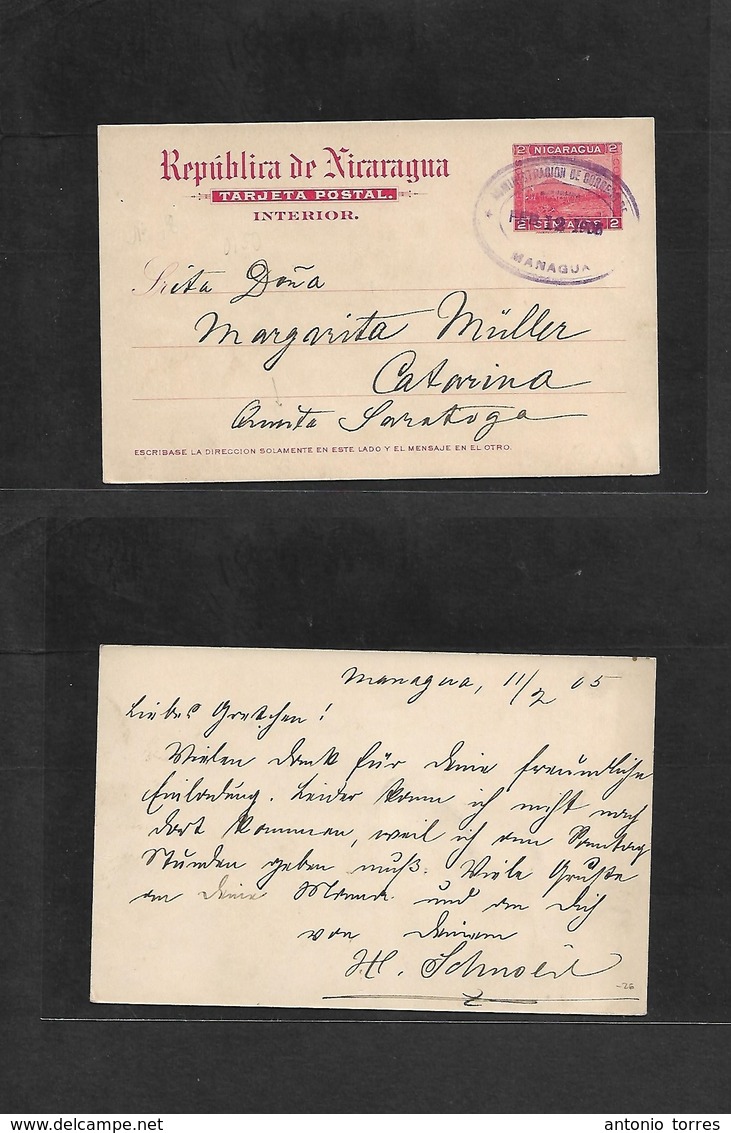 República de Nicaragua
TARJETA POSTAL.
INTERIOR.
2 NICARAGUA 2
2 CENTAVOS 2
ADMINISTRACION DE CORREOS DE
FEB 12
MANAGUA
Srita Doña
Margarita Müller
Catarina
Quinta Saratoga
ESCRIBASE LA DIRECCION SOLAMENTE EN ESTE LADO Y EL MENSAJE EN EL OTRO.
Managua, 11/2 05
Liebes Gretchen!
Vielen Dank für Deine freundliche
Einladung. Leider kann ich nicht nach
dort kommen, weil ich am Sonntag
Stunden geben muß. Viele Grüße
an Deine Mama und an Dich
von Deinem
H.
-26
antonio torres